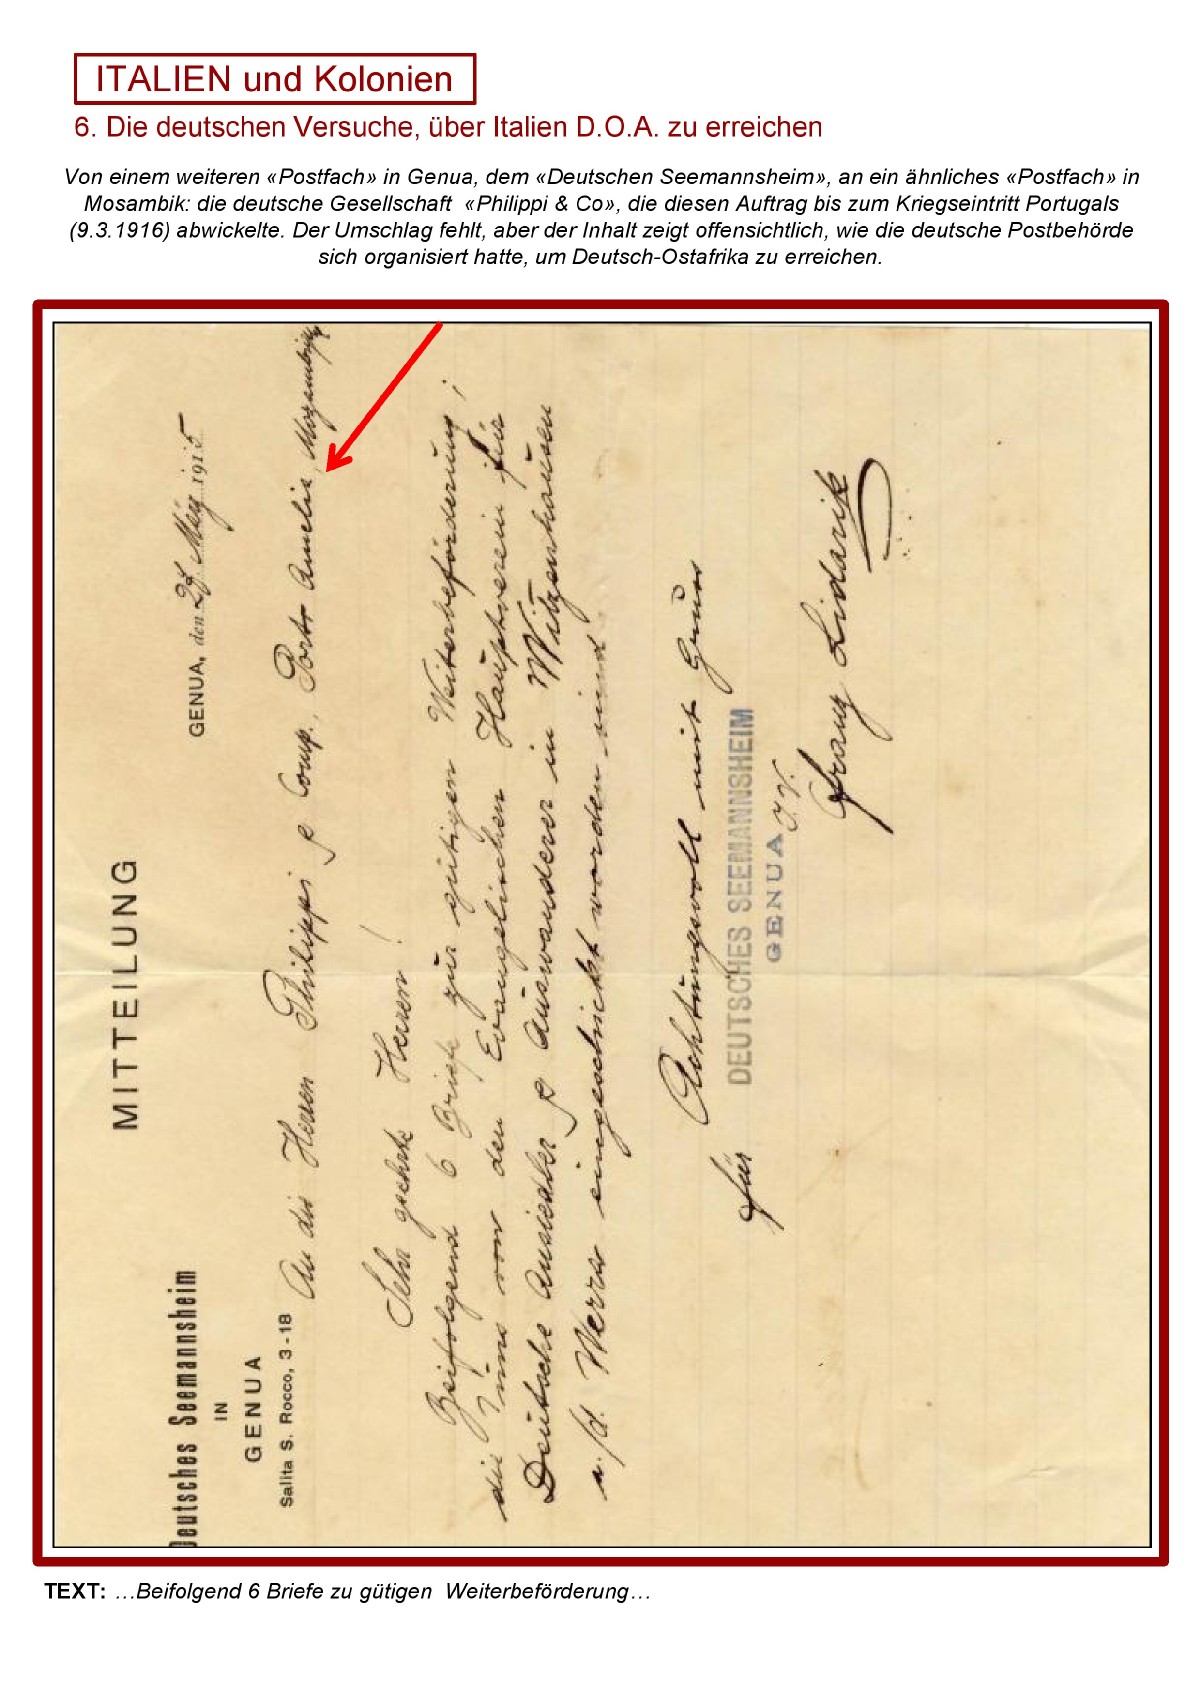 ITALIEN und Kolonien
6. Die deutschen Versuche, über Italien D.O.A. zu erreichen
Von einem weiteren «Postfach» in Genua, dem «Deutschen Seemannsheim», an ein ähnliches «Postfach» in
Mosambik: die deutsche Gesellschaft «Philippi & Co», die diesen Auftrag bis zum Kriegseintritt Portugals
(9.3.1916) abwickelte. Der Umschlag fehlt, aber der Inhalt zeigt offensichtlich, wie die deutsche Postbehörde
sich organisiert hatte, um Deutsch-Ostafrika zu erreichen.
MITTEILUNG
Deutsches Seemannsheim
IN
GENUA
Salita S. Rocco, 3-18
GENUA, den März 1915
An die Herren Philippi & Comp., Porto Amelia,
Sehr geehrte Herren!
Beifolgend 6 Briefe zur gütigen Weiterbeförderung,
die uns von den Evangelischen Hauptverein für
Deutsche Ansiedler & Auswanderer in Witzenhausen
a./d. Werra eingeschickt worden sind
Achtungsvoll mit Gruss
für DEUTSCHES SEEMANNSHEIM
GENUA
Franz Lidarik
TEXT: …Beifolgend 6 Briefe zu gütigen Weiterbeförderung…